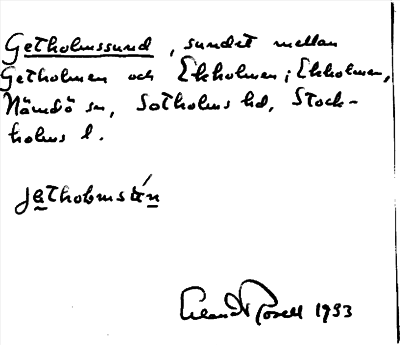 Getholmssund, sundet mellan
Getholmen och Ekholmen; Ekholmen,
Nämdö sn, Sotholms hd, Stock-
holms l.
jetholmstän
Erland Rosell 1933